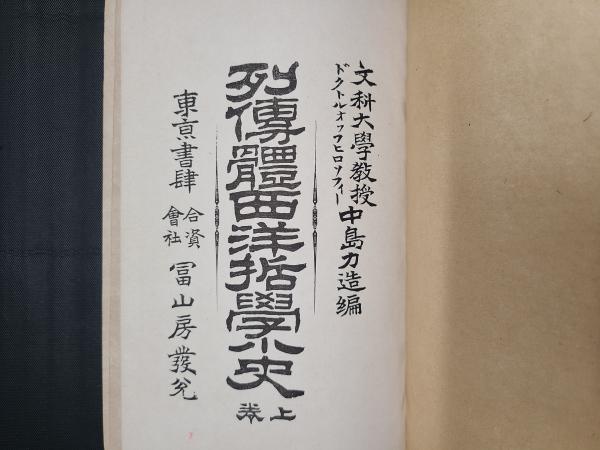 文科大學教授
ドクトルオフフヒロソフィー
中島力造編
列傳體西洋哲學小史
上卷
東京書肆
合資會社
冨山房發兌